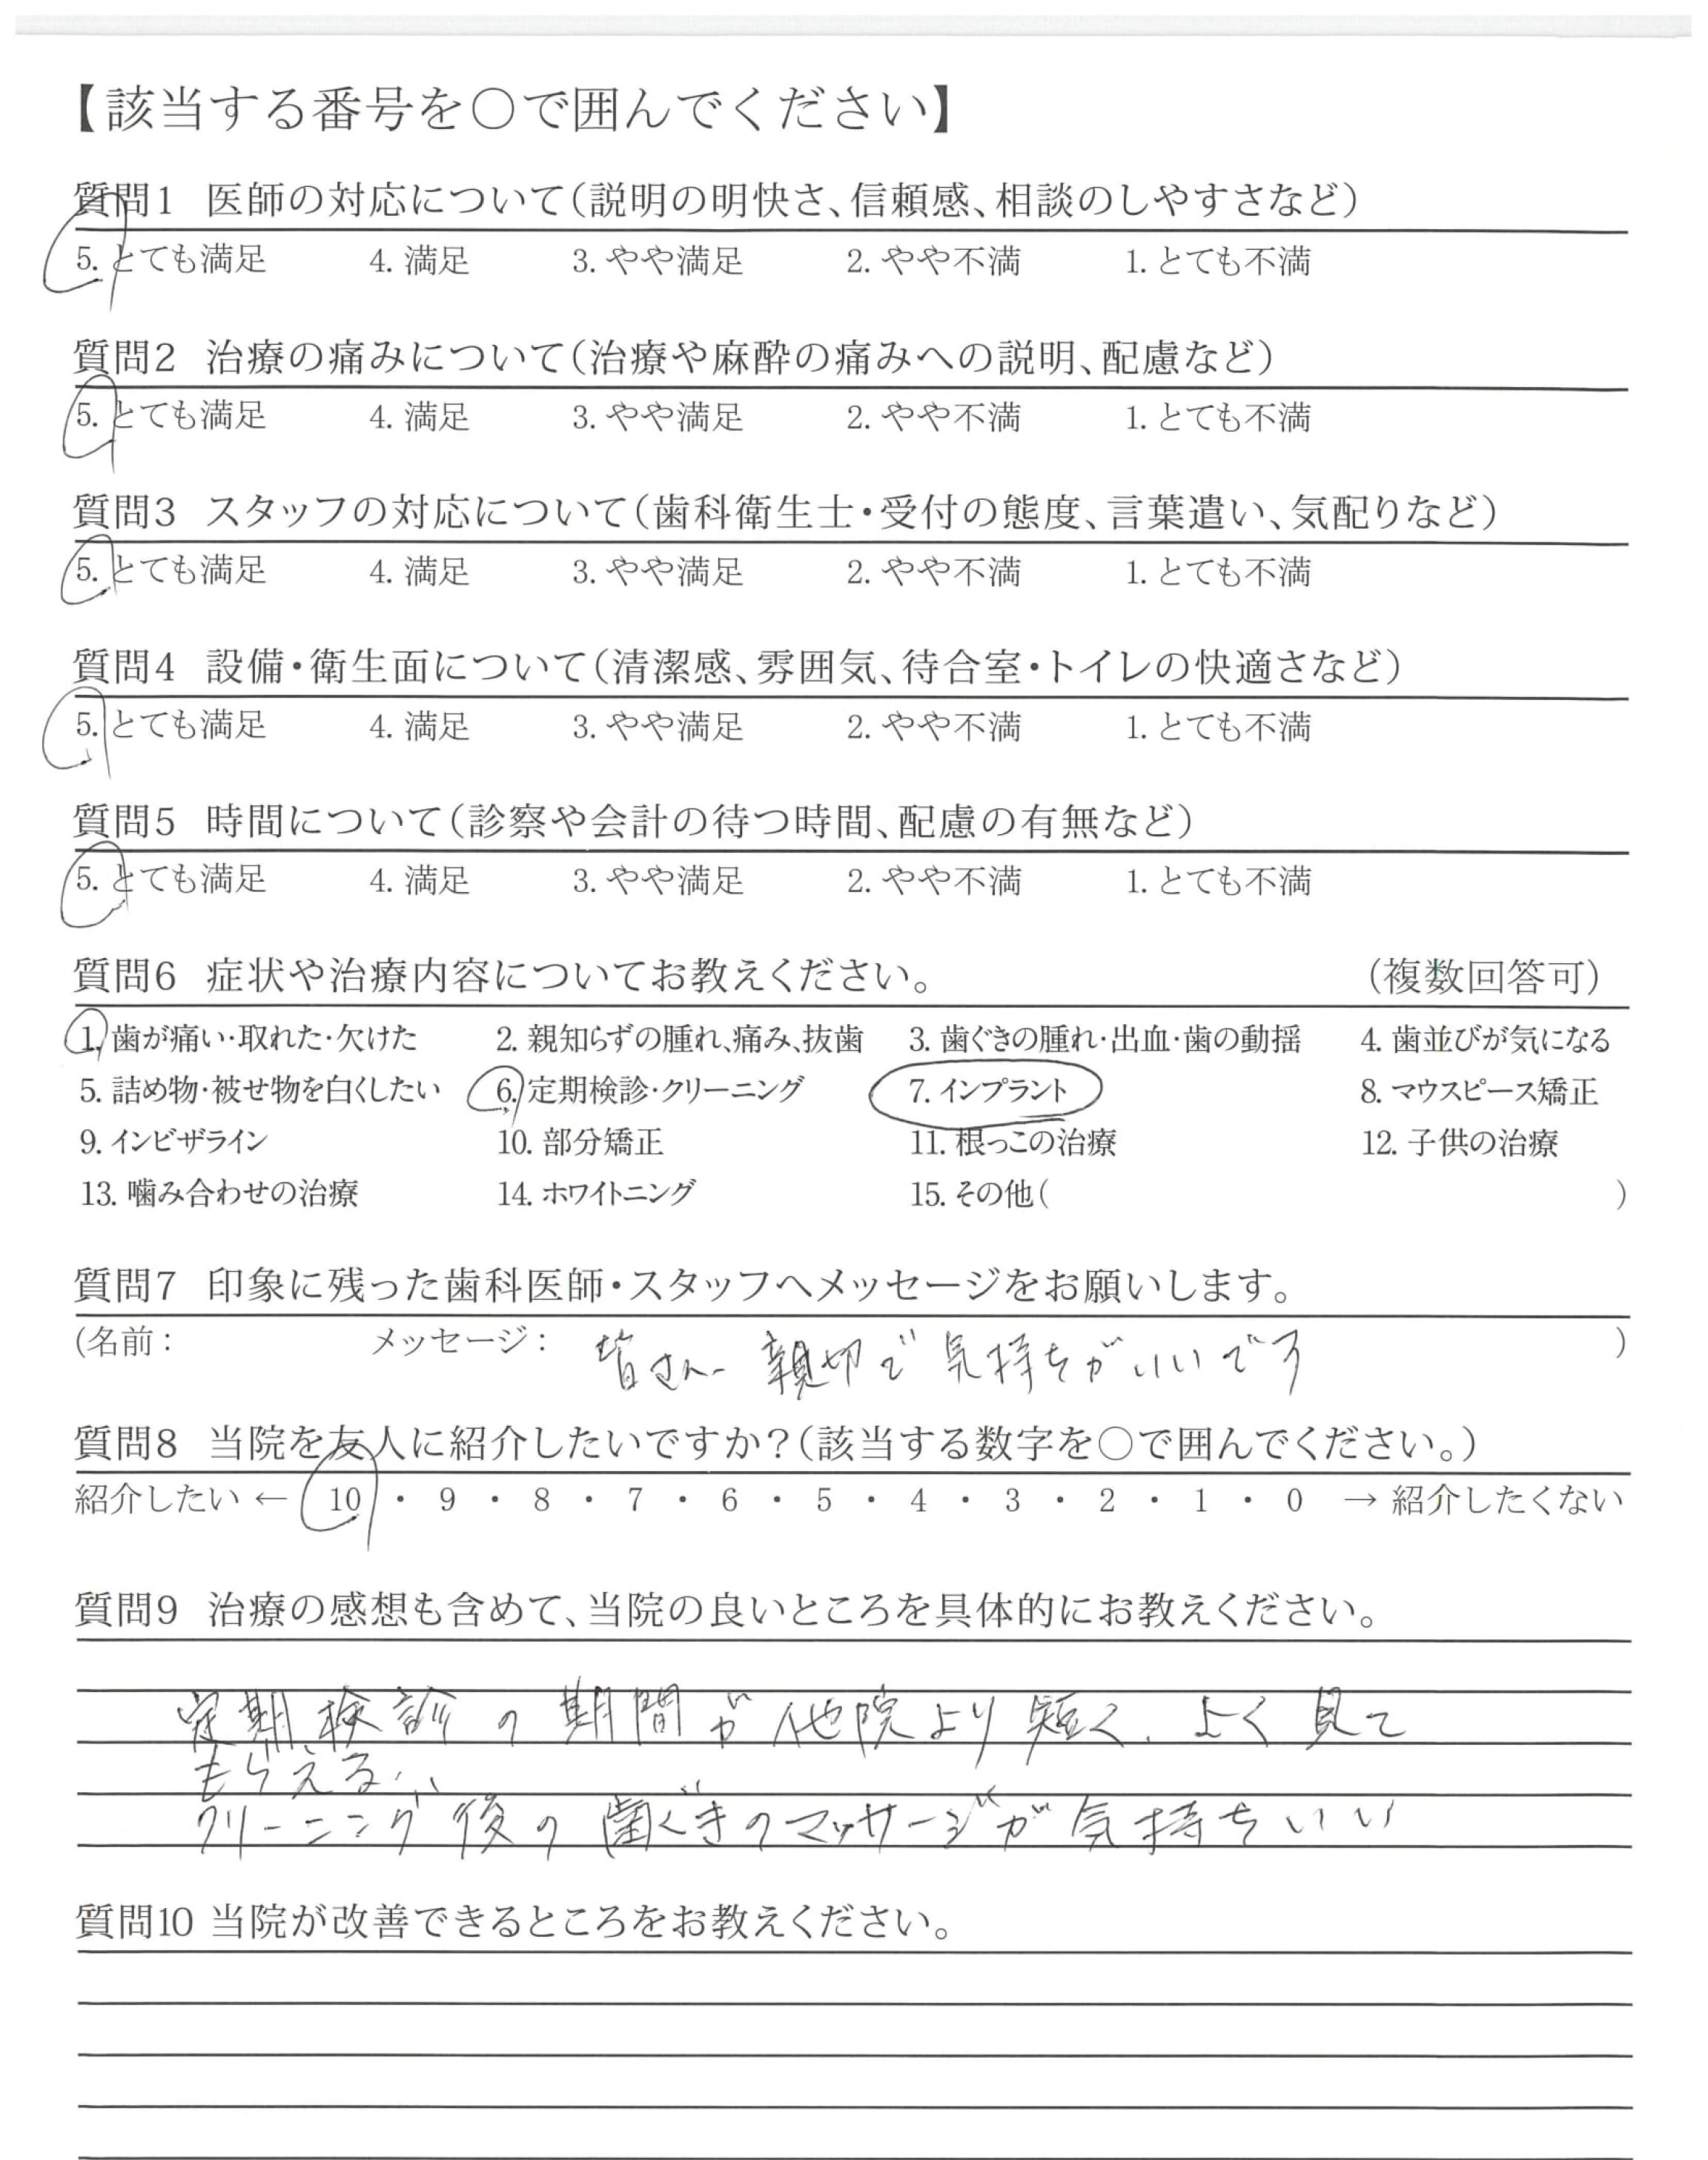 【該当する番号を○で囲んでください】
質問1 医師の対応について（説明の明快さ、信頼感、相談のしやすさなど）
5. とても満足 4. 満足 3. やや満足 2. やや不満 1. とても不満
質問2 治療の痛みについて（治療や麻酔の痛みへの説明、配慮など）
5. とても満足 4. 満足 3. やや満足 2. やや不満 1. とても不満
質問3 スタッフの対応について（歯科衛生士・受付の態度、言葉遣い、気配りなど）
5. とても満足 4. 満足 3. やや満足 2. やや不満 1. とても不満
質問4 設備・衛生面について（清潔感、雰囲気、待合室・トイレの快適さなど）
5. とても満足 4. 満足 3. やや満足 2. やや不満 1. とても不満
質問5 時間について（診察や会計の待つ時間、配慮の有無など）
5. とても満足 4. 満足 3. やや満足 2. やや不満 1. とても不満
質問6 症状や治療内容についてお教えください。 （複数回答可）
1. 歯が痛い・取れた・欠けた 2. 親知らずの腫れ、痛み、抜歯 3. 歯ぐきの腫れ・出血・歯の動揺 4. 歯並びが気になる
5. 詰め物・被せ物を白くしたい 6. 定期検診・クリーニング 7. インプラント 8. マウスピース矯正
9. インビザライン 10. 部分矯正 11. 根っこの治療 12. 子供の治療
13. 噛み合わせの治療 14. ホワイトニング 15. その他（ ）
質問7 印象に残った歯科医師・スタッフへメッセージをお願いします。
（名前： メッセージ： 皆さん 親切で 気持ちがいいです ）
質問8 当院を友人に紹介したいですか？（該当する数字を○で囲んでください。）
紹介したい ← 10 ・ 9 ・ 8 ・ 7 ・ 6 ・ 5 ・ 4 ・ 3 ・ 2 ・ 1 ・ 0 → 紹介したくない
質問9 治療の感想も含めて、当院の良いところを具体的にお教えください。
定期検診の期間が他院より短く、よく見て
もらえる。
クリーニング後の歯ぐきのマッサージが気持ちいい
質問10 当院が改善できるところをお教えください。